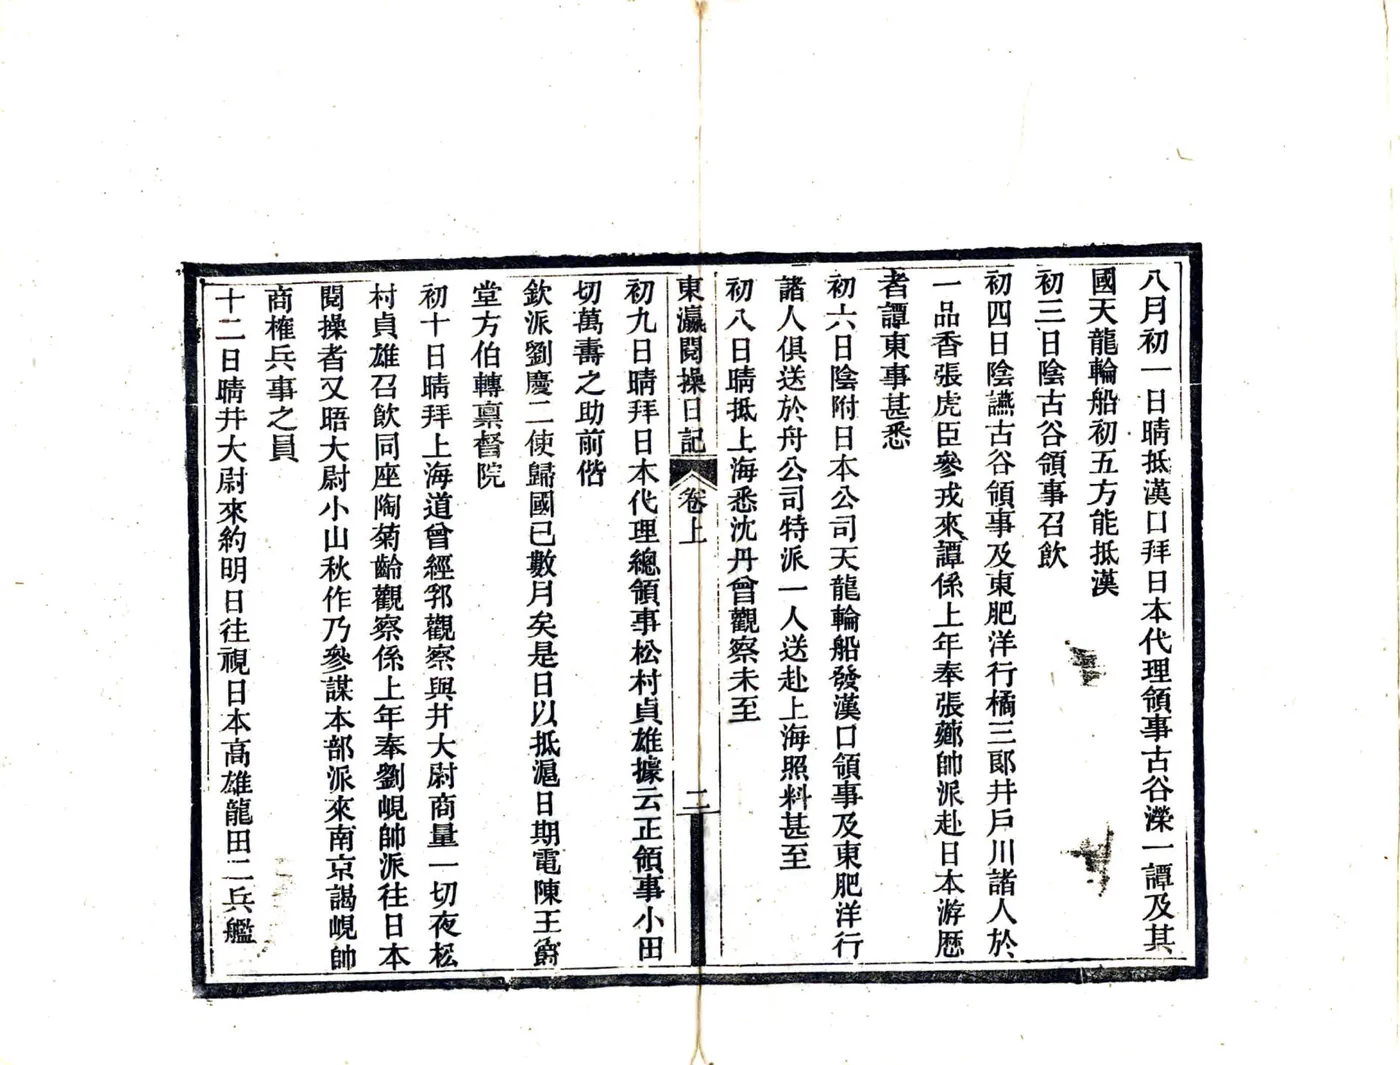 八月初一日晴抵漢口拜日本代理領事古谷濚一譚及其
國天龍輪船初五方能抵漢
初三日陰古谷領事召飲
初四日陰讌古谷領事及東肥洋行橘三郎井戶川諸人於
一品香張虎臣參戎來譚係上年奉張薌帥派赴日本游歷
者譚東事甚悉
初六日陰附日本公司天龍輪船發漢口領事及東肥洋行
諸人俱送於舟公司特派一人送赴上海照料甚至
初八日晴抵上海悉沈丹曾觀察未至
東瀛閱操日記
卷上
二
初九日晴拜日本代理總領事松村貞雄據云正領事小田
切萬壽之助前偕
欽派劉慶二使歸國已數月矣是日以抵滬日期電陳王爵
堂方伯轉稟督院
初十日晴拜上海道曾經郛觀察與井大尉商量一切夜松
村貞雄召飲同座陶菊齡觀察係上年奉劉峴帥派往日本
閱操者又晤大尉小山秋作乃參謀本部派來南京謁峴帥
商榷兵事之員
十二日晴井大尉來約明日往視日本高雄龍田二兵艦